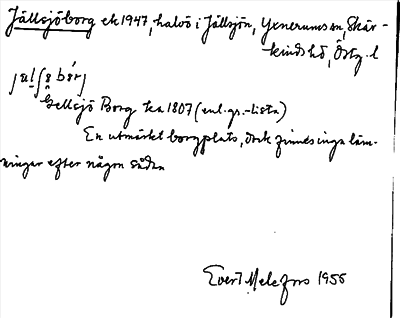 Jällsjöborg ek 1947, halvö i Jällsjön, Yxnerums sn, Skär-
kinds hd, Östg. l
Gellsjö Borg ka 1807 (enl. gs.-lista)
En utmärkt borgplats, dock finnes inga läm-
ningar efter någon sådan
Evert Melefors 1956